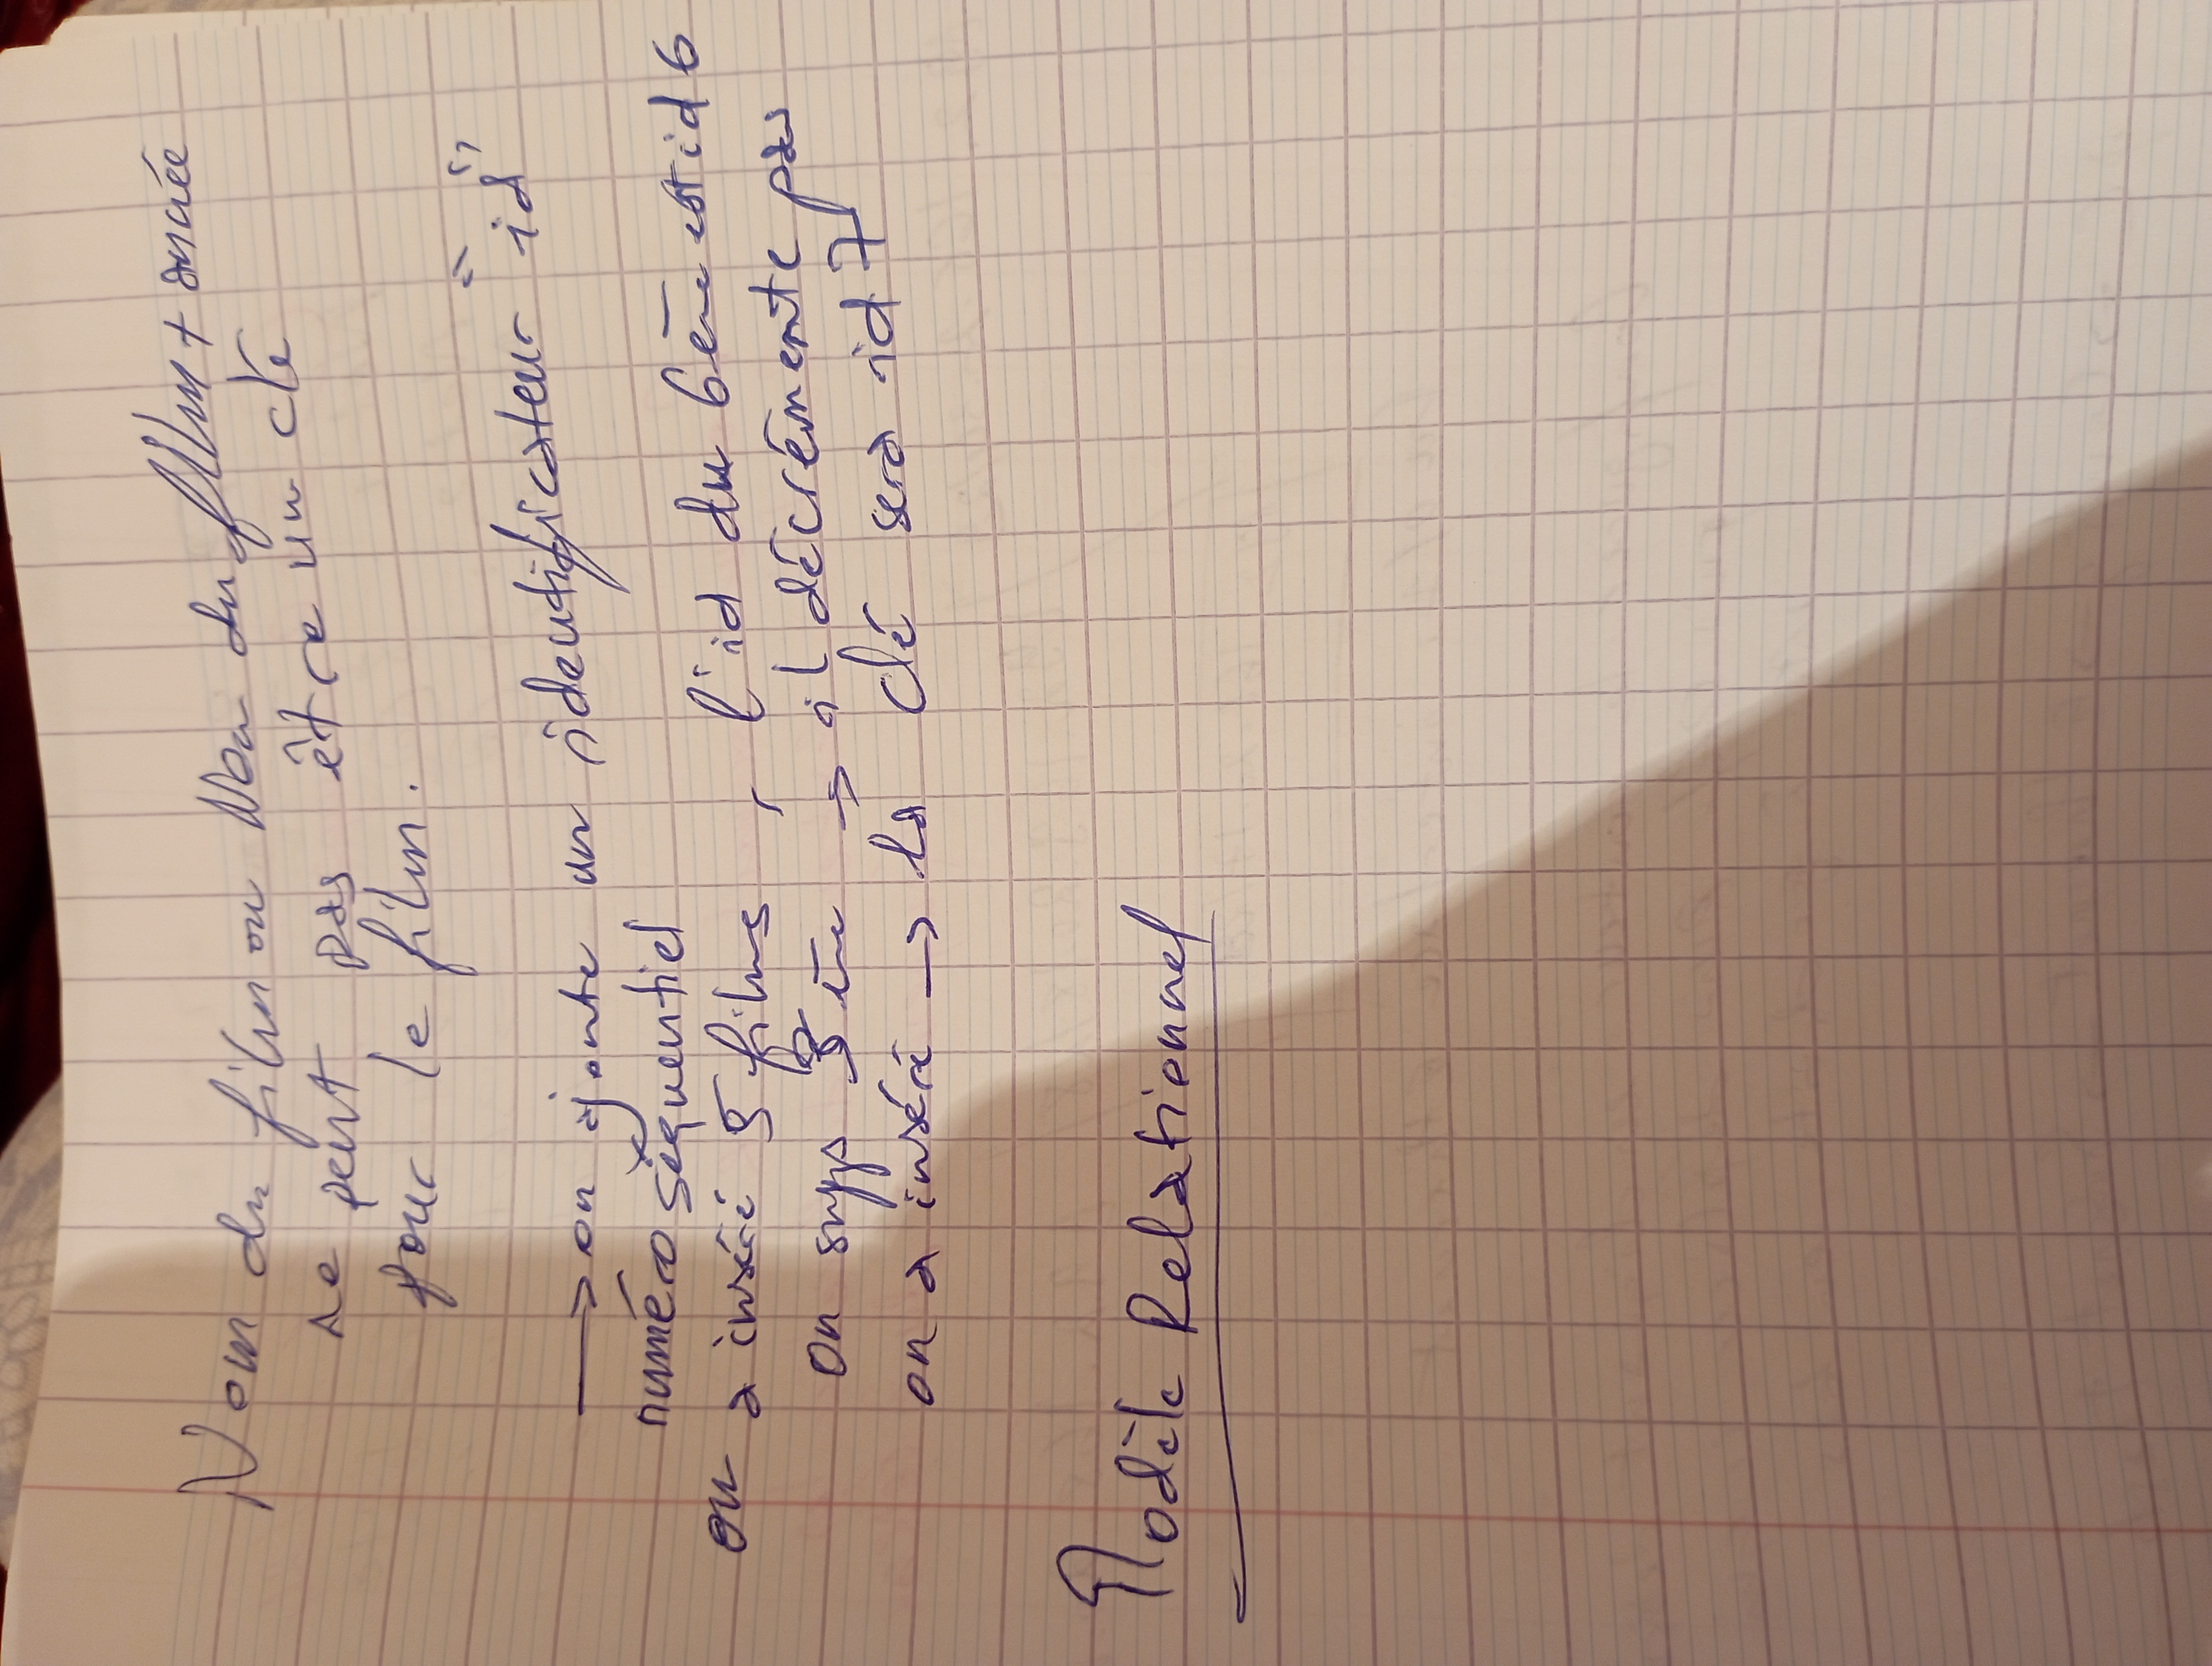 Nom du film ou Nom du film + année
ne peut pas être un clé
pour le film.
→ on ajoute un identificateur "id"
numéro séquentiel
on a inséré 5 films, l'id du 6ème est id 6
on supp 6ème → il décrémente pas
on a inséré → la clé sera id 7
Modèle Relationnel